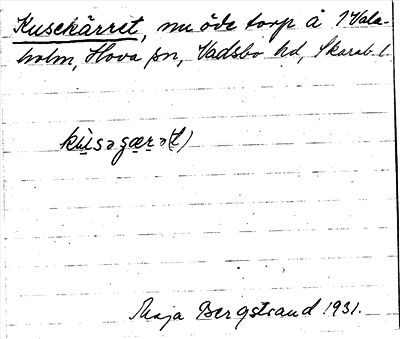 Kusekärret, nu öde torp å 1 Vala-
holm, Hova sn, Vadsbo hd, Skarab. l.
kùsəgær̲ə(t)
Maja Bergstrand 1931.